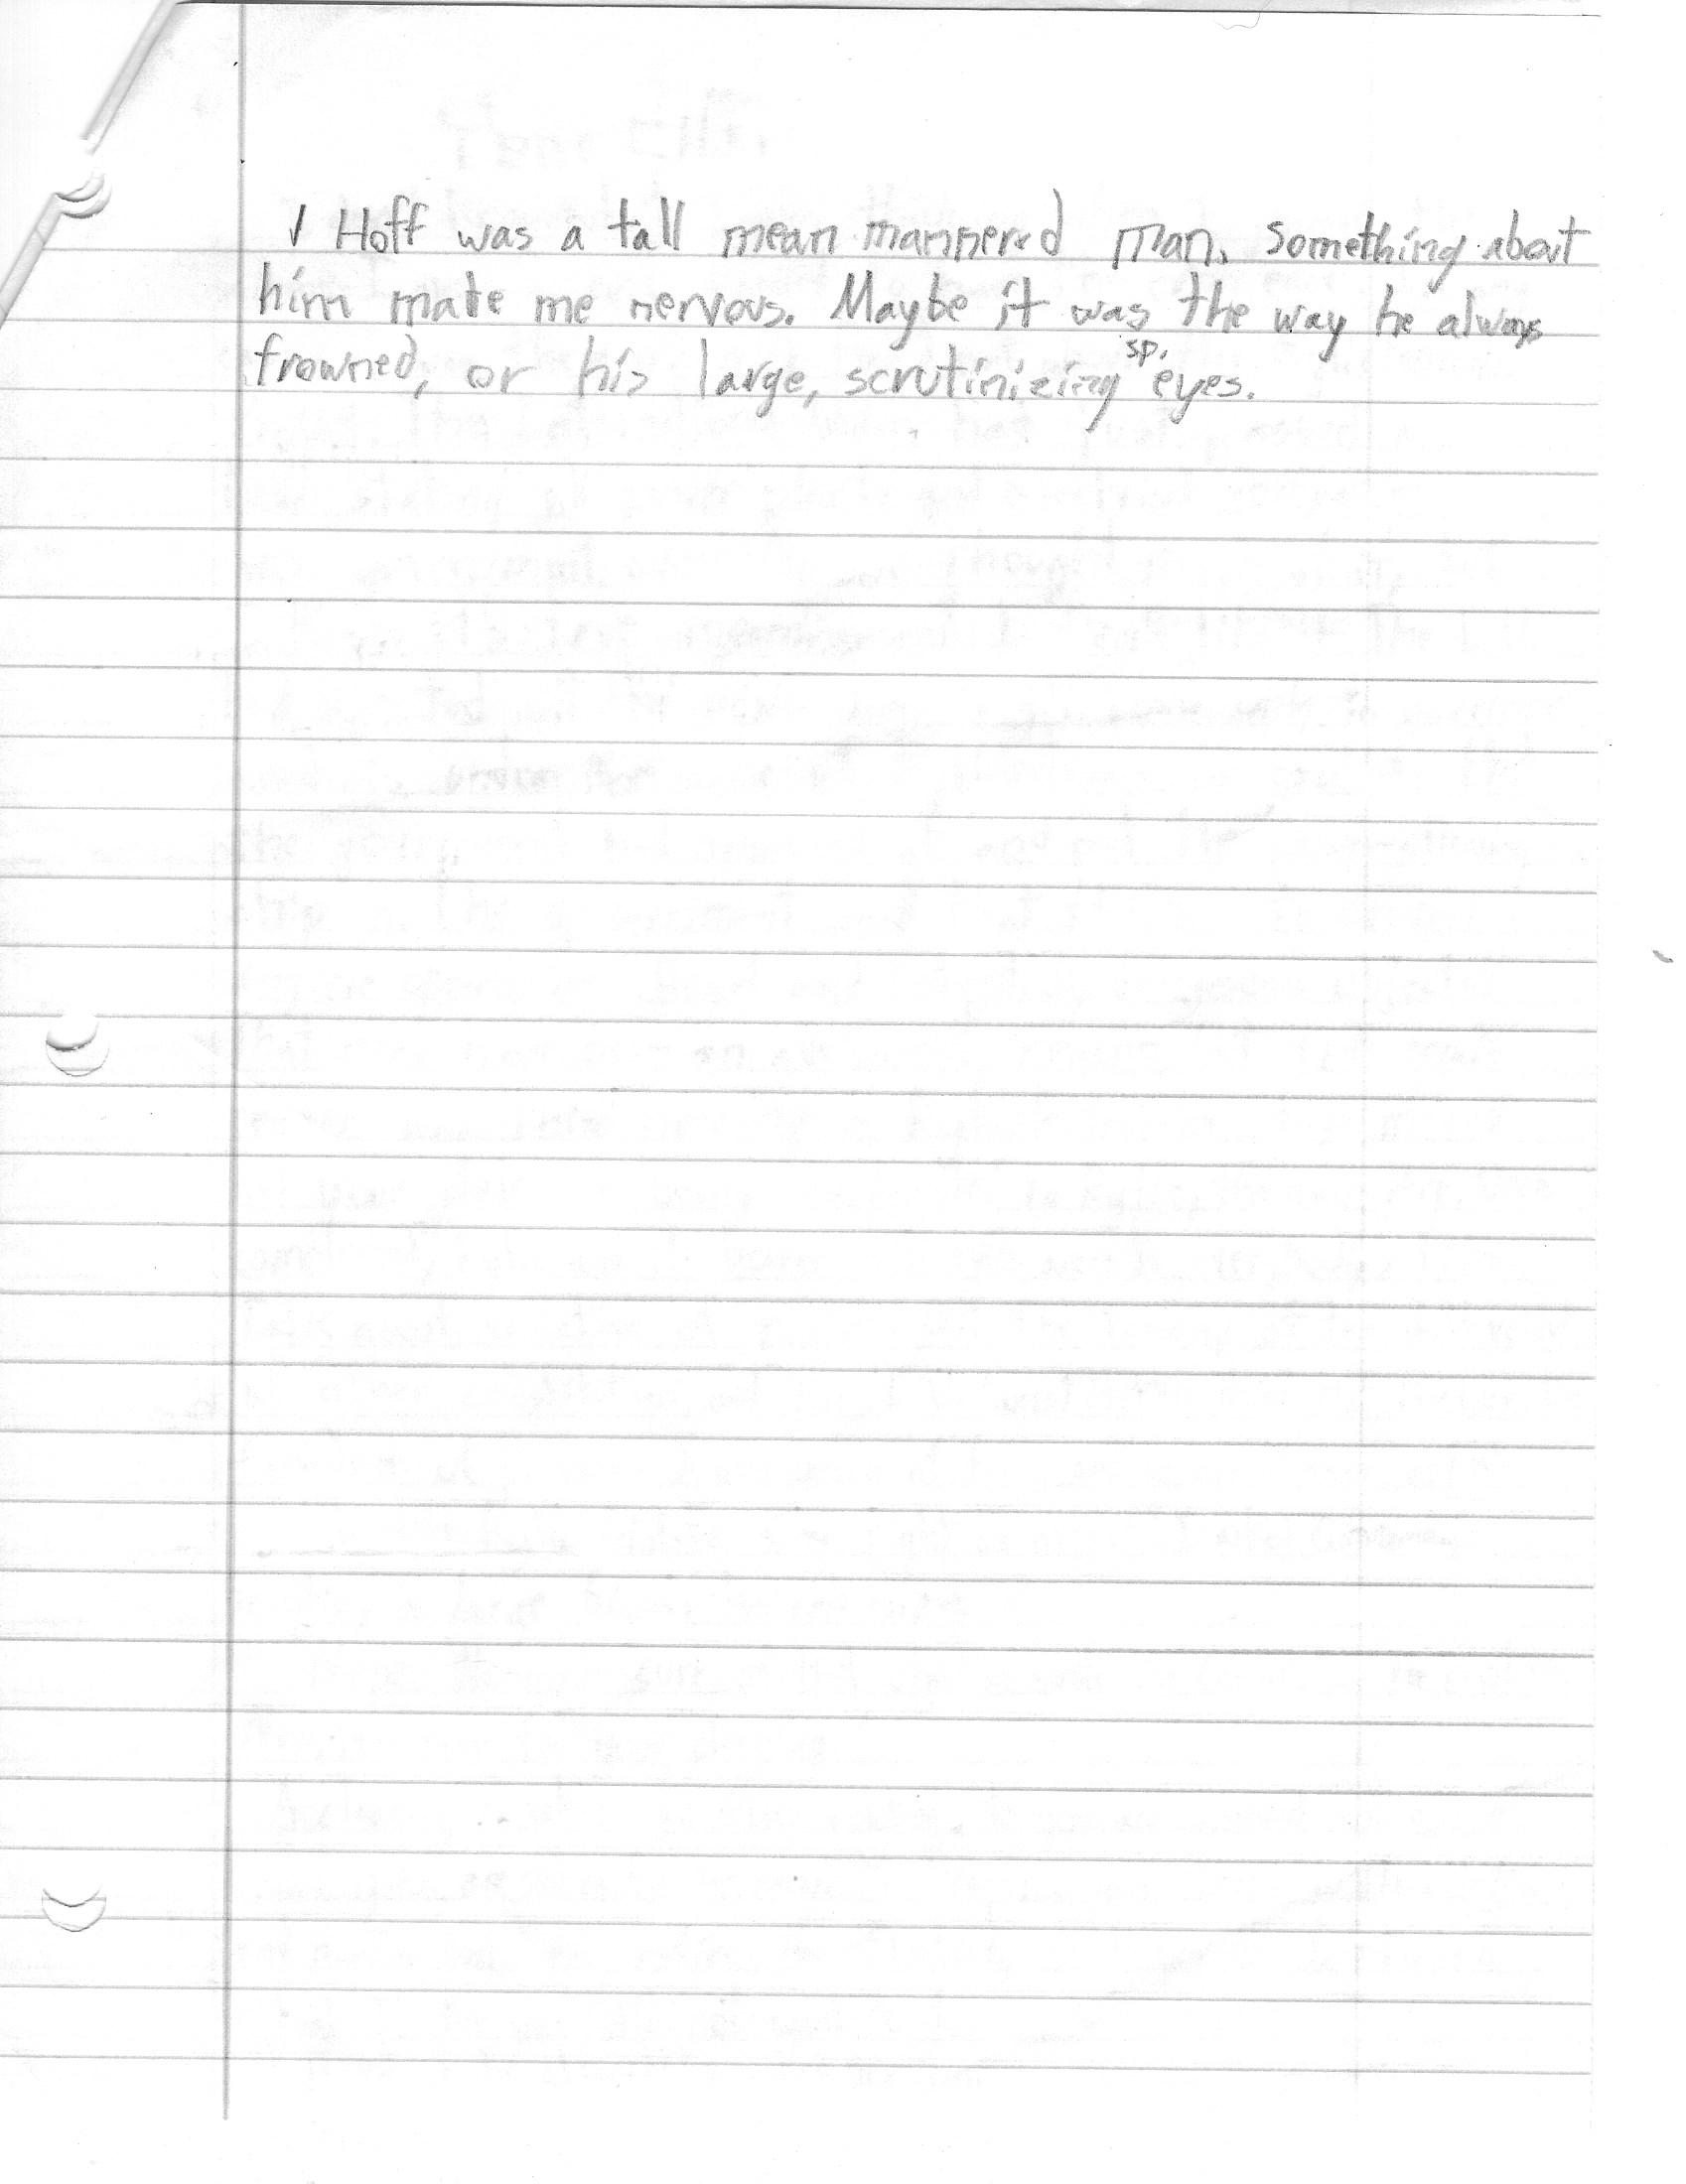 ✓ Hoff was a tall mean mannered man, something about
him mate me nervous. Maybe it was the way he always
frowned, or his large, scrutinizing sp. eyes.